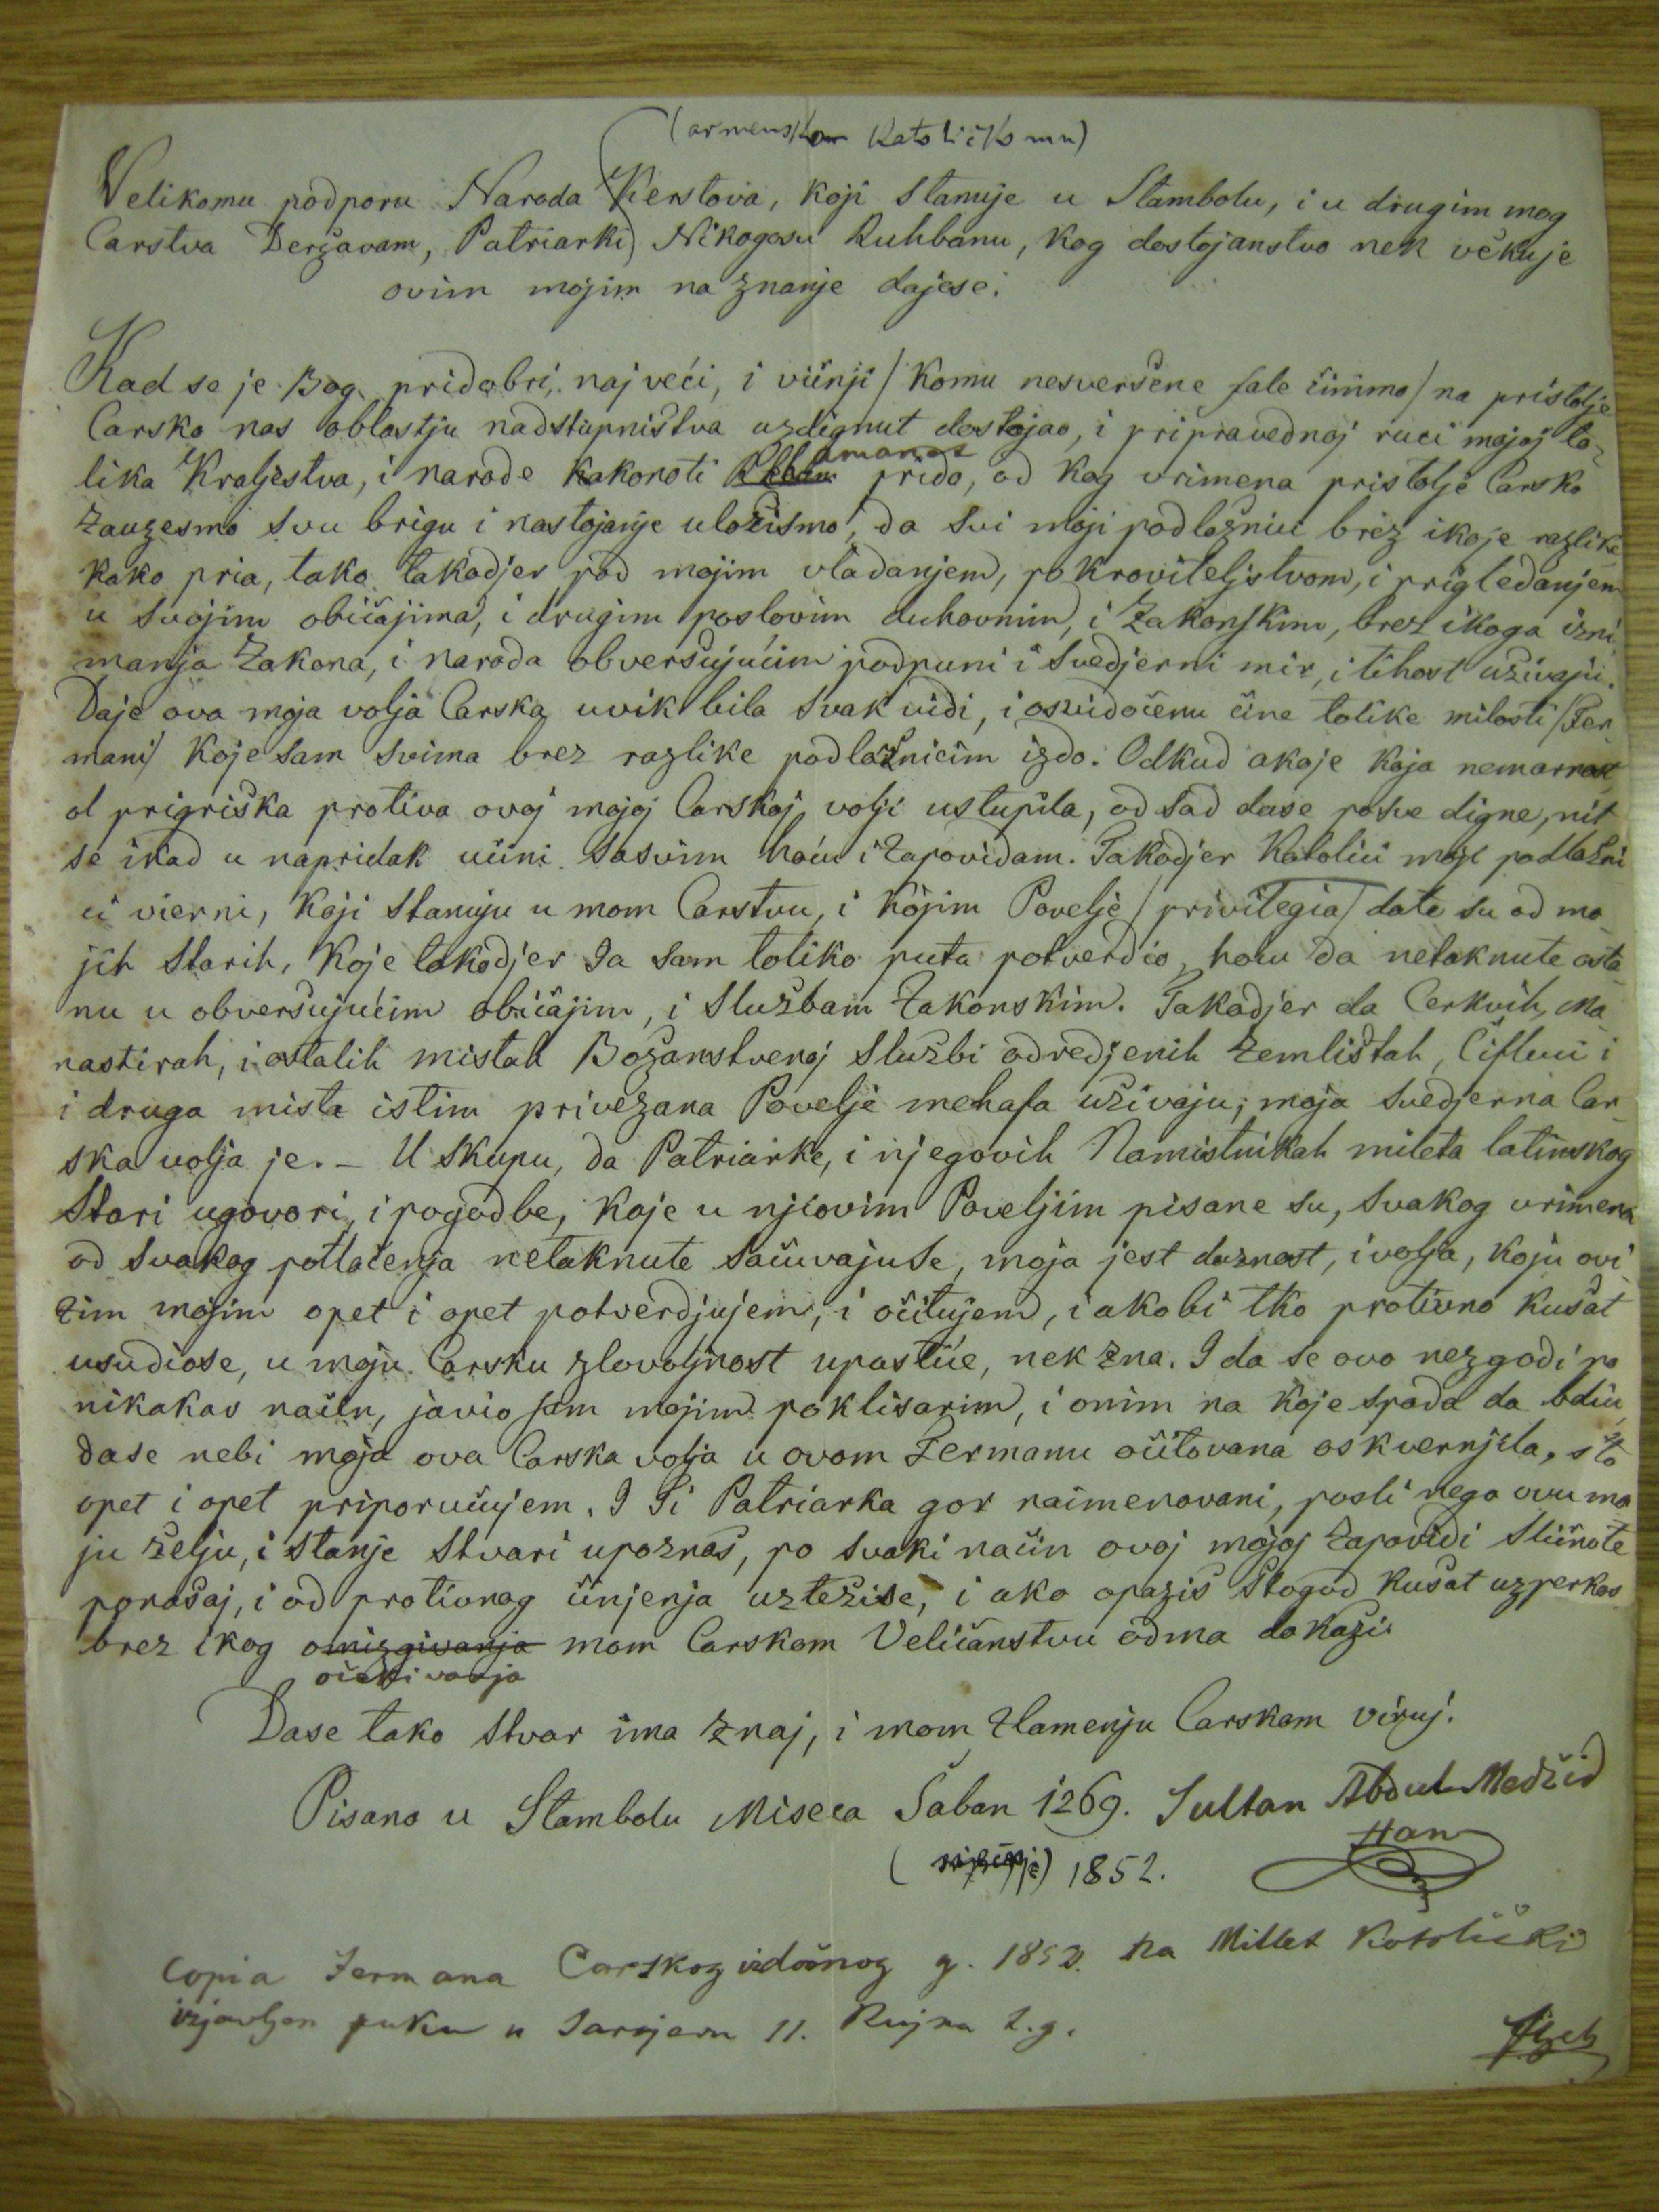 (armenskom Katoličkomu)
Velikomu podporu Naroda Kerstova, koji stanuje u Stambolu, i u drugim mog
Carstva Deržavam, Patriarki) Nikogosu Ruhbanu, kog dostojanstvo nek věkuje
ovim mojim na znanje dajese.
Kad se je Bog pridobri, najveći, i višnji / komu nesveršene fale činimo / na pristolje
Carsko nas oblastju nadstupništva uzdignut dostojao, i pripravednoj ruci mojoj to-
lika Kraljestva, i narode kakonoti amanet prido, od kog vrimena pristolje Carsko
zauzesmo svu brigu i nastojanje uložismo, da svi moji podložnici brez ikoje razlike
kako pria, tako takodjer pod mojim vladanjem, pokroviteljstvom, i prigledanjem
u svojim običajima, i drugim poslovim duhovnim, i zakonskim, brez ikoga izni
manja zakona, i naroda obveršujućim podpuni i svedjerni mir, i tihost uživaju.
Daje ova moja volja Carska uvik bila svak vidi, i osvidočenu čine tolike milosti / Fer
mani / koje sam svima brez razlike podložnicim izdo. Odkud akoje koja nemarnost
ol prigriška protiva ovoj mojoj Carskoj volji ustupila, od sad dase posve digne, nit
se ikad u napridak učini sasvim hoću i zapovidam. Takodjer Katolici moji podložni
ci vierni, koji stanuju u mom Carstvu, i kojim Povelje / privilegia / date su od mo
jih starih, koje takodjer Ja sam toliko puta potverdio, hoću da netaknute osta
nu u obveršujućim običajim, i službam zakonskim. Takodjer da Cerkvih, Ma
nastirah, i ostalih mistah Božanstvenoj službi odredjenih zemlištah, čifluci i
i druga mista istim privezana Povelje mehafa uživaju, moja svedjerna Car
ska volja je. – U skupu, da Patriarke, i njegovih Namistnikah mileta latinskog
stari ugovori, i pogodbe, koje u njiovim Poveljim pisane su, svakog vrimena
od svakog potlačenja netaknute sačuvajuse, moja jest dužnost, i volja, koju ovi
zim mojim opet i opet potverdjujem, i očitujem, i ako bi tko protivno kušat
usudiose, u moju Carsku zlovoljnost upastiće, nek zna. I da se ovo nezgodi po
nikakav način, javio sam mojim poklisarim, i onim na koje spada da bdiu
dase nebi moja ova Carska volja u ovom Fermanu očitovana oskvernjila, što
opet i opet priporučujem. I Ti Patriarka gor naimenovani, posli nego ovu mo
ju želju, i stanje stvari upoznaš, po svaki način ovoj mojoj zapovidi slično te
ponašaj, i od protivnog činjenja uztežise, i ako opaziš štogod kušat uzperkos
brez ikog omizgivanja mom Carskom Veličanstvu odma dokaži.
očekivanja
Dase tako stvar ima znaj, i mom zlamenju Carskom viruj.
Pisano u Stambolu Miseca Šaban 1269. Sultan Abdul-Medžid
Han
1852.
Copia Fermana Carskog izdanog g. 1852. na Millet Katolički
izjavljen puku u Sarajevu 11. Rujna t.g.